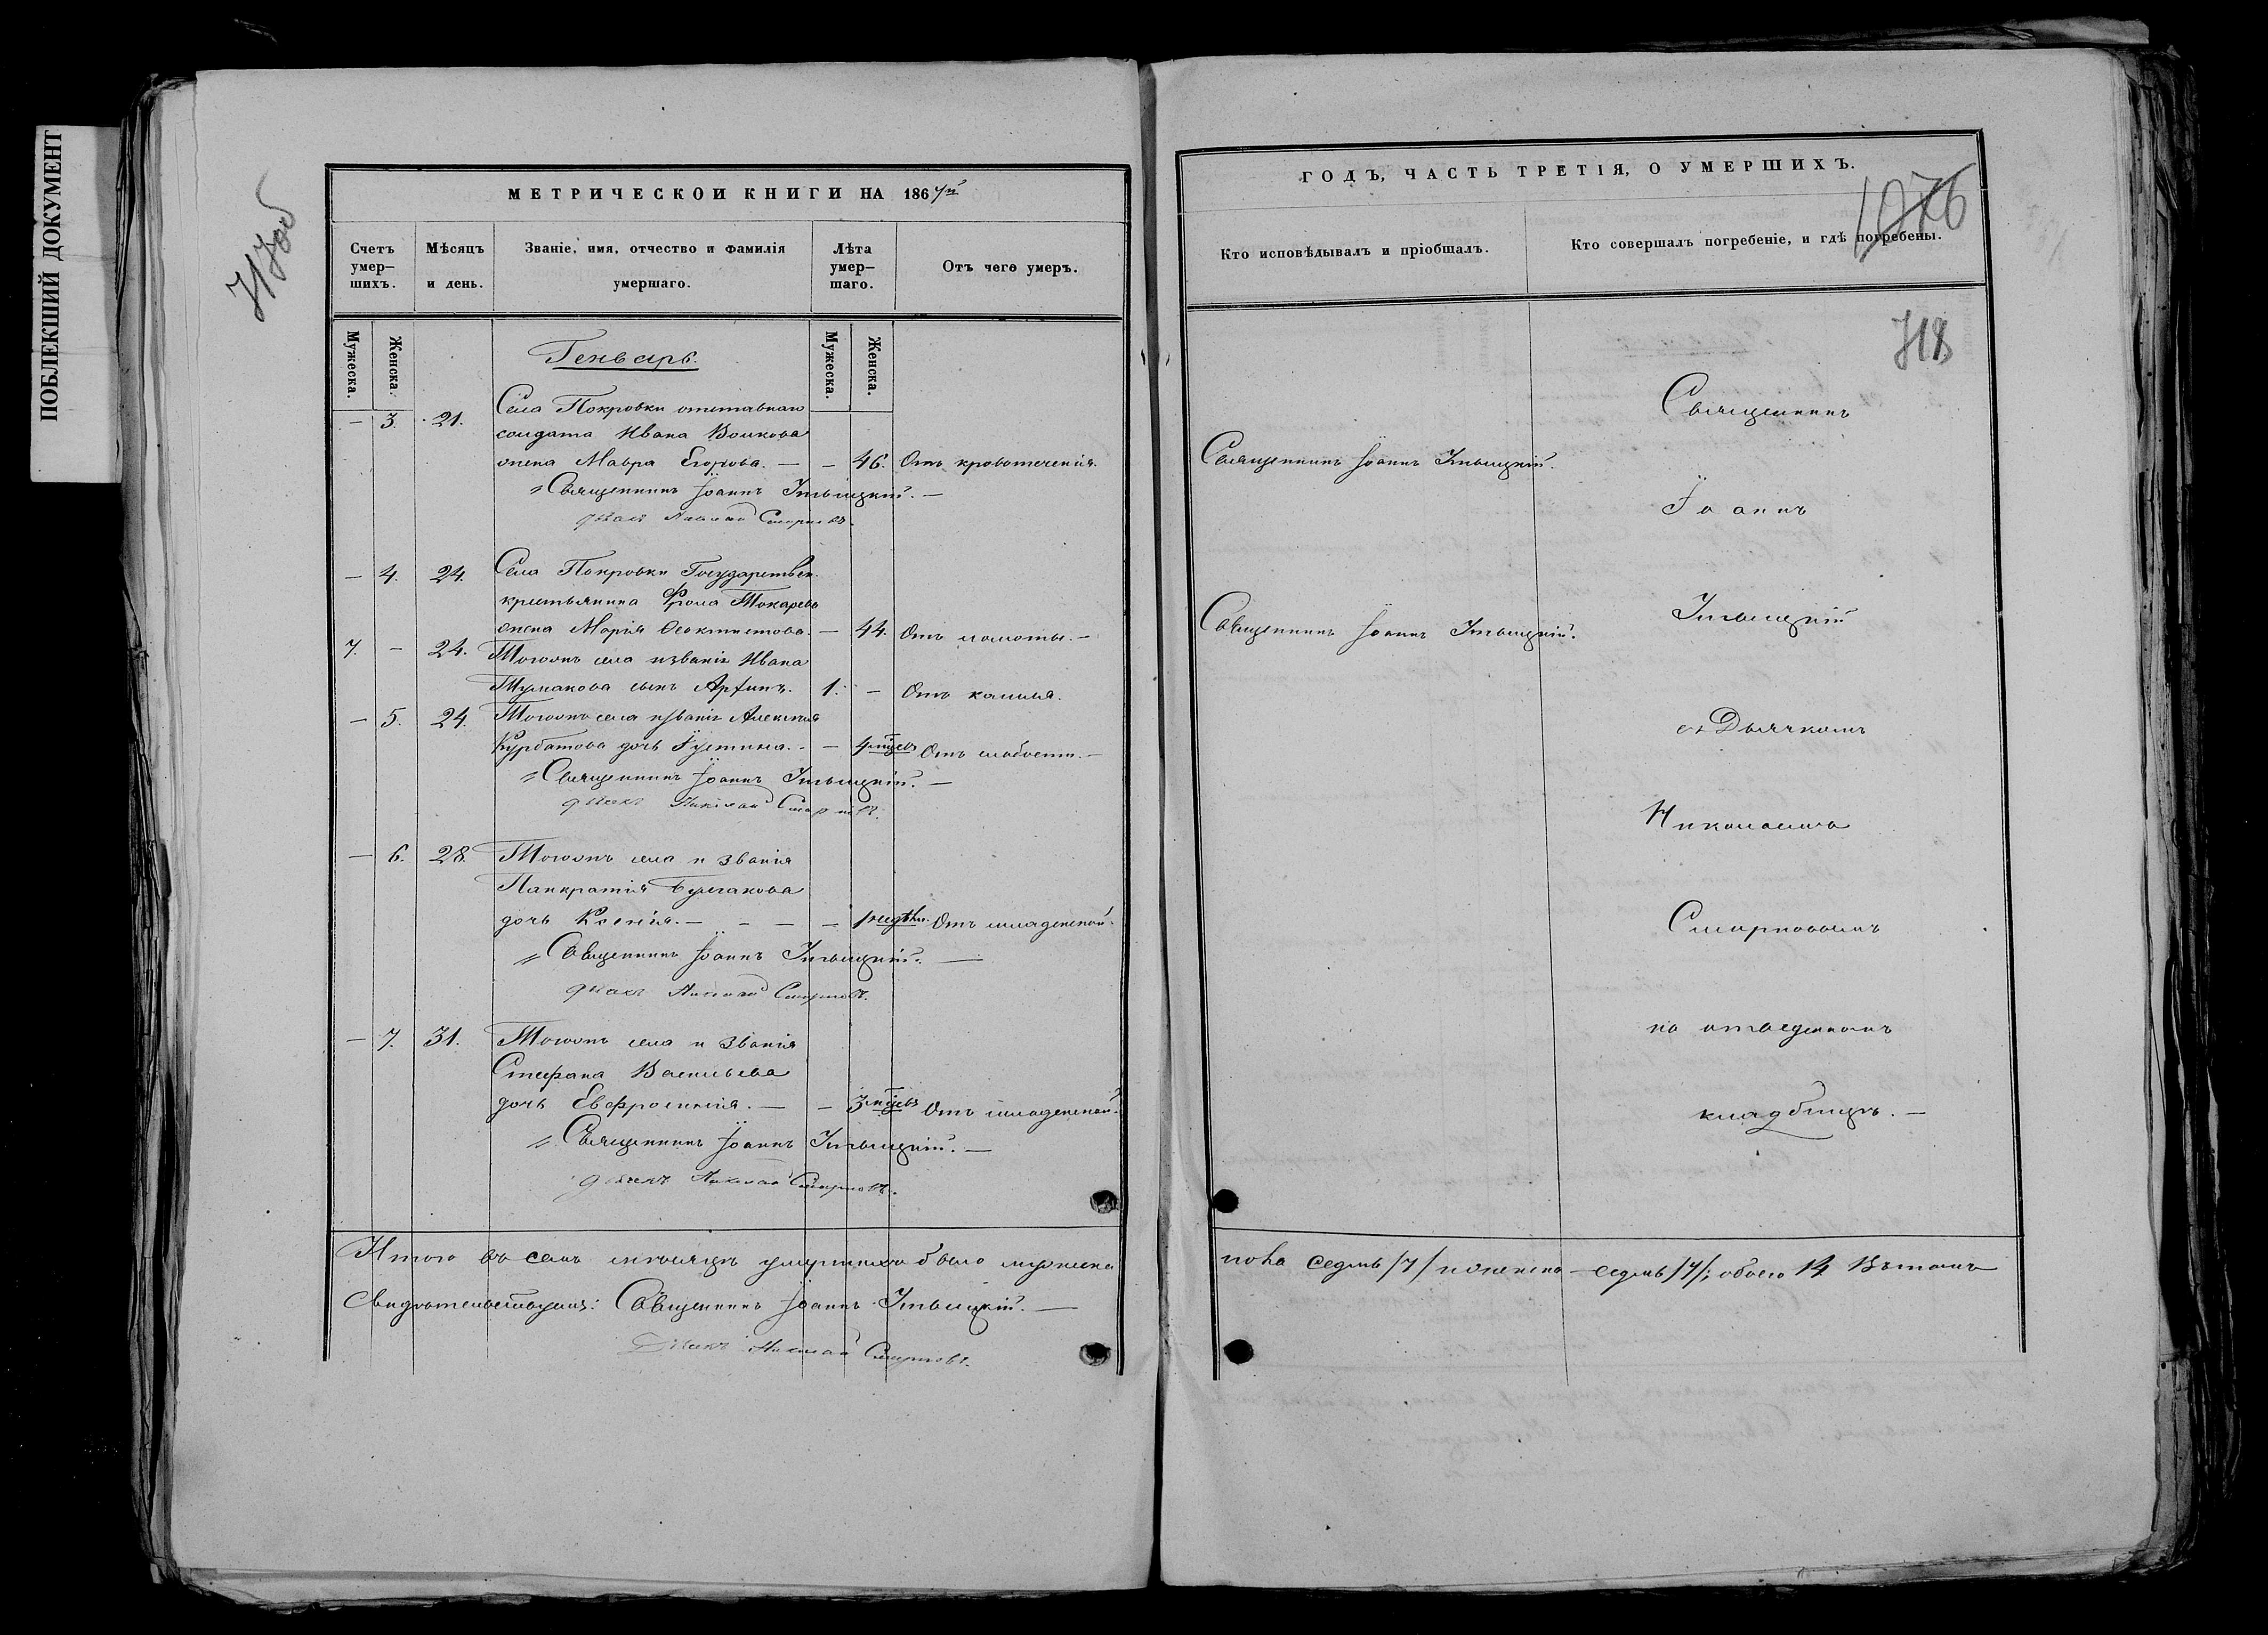 ПОБЛЕКШИЙ ДОКУМЕНТ
717об
МЕТРИЧЕСКОЙ КНИГИ НА 1867й
Счетъ умер–шихъ.
Мѣсяцъ и день.
Званіе, имя, отчество и фамилія умершаго.
Лѣта умер–шаго.
Отъ чего умеръ.
Мужеска. Женска.
Мужеска. Женска.
Генварь.
Села Покровки отставнаго
– 3. 21. солдата Ивана Волкова
жена Мавра Егорова. — – 46. Отъ кровотеченія.
Священникъ Іоаннъ
дьякъ Николай Смирновъ.
– 4. 24. Села Покровки Государствен.
крестьянина Фрола Токарева
жена Марія Ѳеоктистова. – 44. Отъ ломоты. –
7. – 24. Тогожъ села и званія Ивана
сынъ 1. – Отъ кашля.
– 5. 24. Тогожъ села и званія Алексѣя
Курбатова дочь Іустина. – – мцевъ Отъ слабости. –
Священникъ Іоаннъ
дьякъ Николай Смирновъ.
– 6. 28. Тогожъ села и званія
Панкратія Булгакова
дочь Ксенія. – – – – 1 недѣли. Отъ младенской.
Священникъ Іоаннъ
дьякъ Николай Смирновъ.
– 7. 31. Тогожъ села и званія
Стефана Васильева
дочь Евфросинія. — – 3 мцевъ Отъ младенской.
Священникъ Іоаннъ
дьякъ Николай Смирновъ.
Итого въ семъ мѣсяцѣ умершихъ было мужеска
Свидѣтельствуемъ: Священникъ Іоаннъ
Дьякъ Николай Смирновъ.
ГОДЪ, ЧАСТЬ ТРЕТІЯ, О УМЕРШИХЪ.
1076
Кто исповѣдывалъ и пріобщалъ.
Кто совершалъ погребеніе, и гдѣ погребены.
718
Священникъ
Священникъ Іоаннъ
Іоаннъ
Священникъ Іоаннъ
съ Дьячкомъ
Николаемъ
Смирновымъ
на отведенномъ
кладбищѣ. –
пола седмь /7/ и женска – седмь /7/; обоего 14 Въ томъ